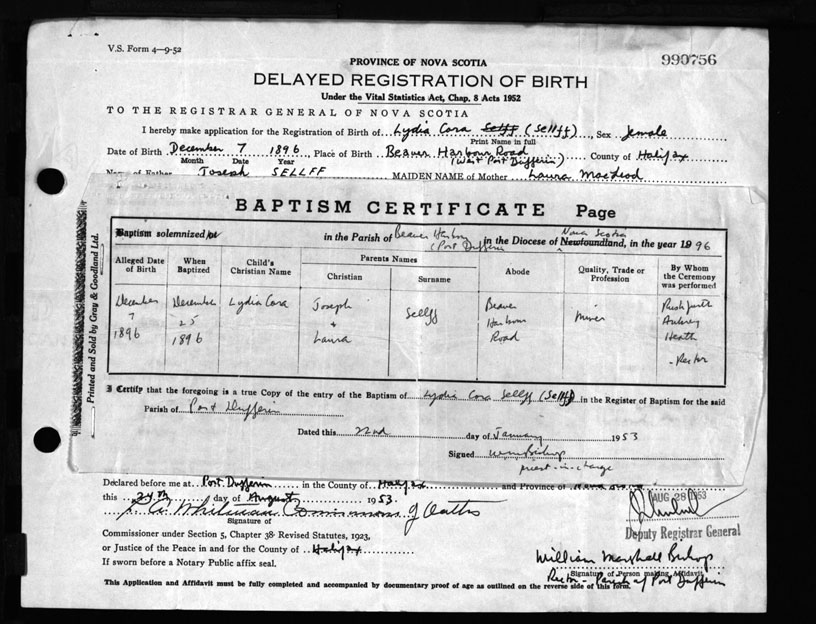 V.S. Form 4—9-52
990756
PROVINCE OF NOVA SCOTIA
DELAYED REGISTRATION OF BIRTH
Under the Vital Statistics Act, Chap. 8 Acts 1952
TO THE REGISTRAR GENERAL OF NOVA SCOTIA
I hereby make application for the Registration of Birth of Lydia Cora Selff (Sellff), Sex female
Print Name in full
Date of Birth December 7 1896, Place of Birth Beaver Harbour Road County of Halifax
Month Date Year (West Port Dufferin)
Name of Father Joseph SELLFF MAIDEN NAME of Mother Laura MacLeod
BAPTISM CERTIFICATE Page
Baptism solemnized at in the Parish of Beaver Harbour (Port Dufferin in the Diocese of Newfoundland, Nova Scotia in the year 1996
Alleged Date of Birth When Baptized Child's Christian Name Parents Names Christian Surname Abode Quality, Trade or Profession By Whom the Ceremony was performed
December 7 1896 December 25 1896 Lydia Cora Joseph + Laura Sellff Beaver Harbour Road miner Aubrey Heath - Rector
I Certify that the foregoing is a true Copy of the entry of the Baptism of Lydia Cora Sellff (Sellff) in the Register of Baptism for the said
Parish of Port Dufferin
Dated this 22nd day of January 1953
Signed Wm Bishop
priest-in-charge
Printed and Sold by Gray & Goodland Ltd.
Declared before me at Port Dufferin in the County of Halifax and Province of Nova Scotia
this 24th day of August 1953.
AUG 28 1953
Commissioner of Oaths
Signature of
Deputy Registrar General
Commissioner under Section 5, Chapter 38 Revised Statutes, 1923,
or Justice of the Peace in and for the County of Halifax
If sworn before a Notary Public affix seal.
William Marshall Bishop
Signature of Person making Affidavit
Rector - Parish of Port Dufferin
This Application and Affidavit must be fully completed and accompanied by documentary proof of age as outlined on the reverse side of this form.